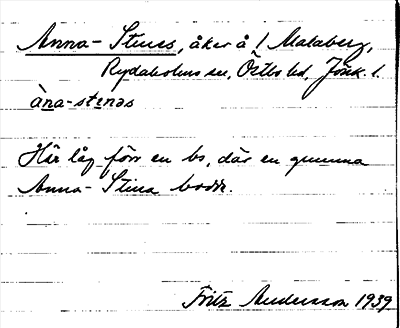 Anna-Stinas, åker å 1 Malaberg,
Rydaholms sn, Östbo hd, Jönk. l.
àna-stenas
Här låg förr en bs, där en gumma
Anna-Stina bodde.
Fritz Andersson 1939